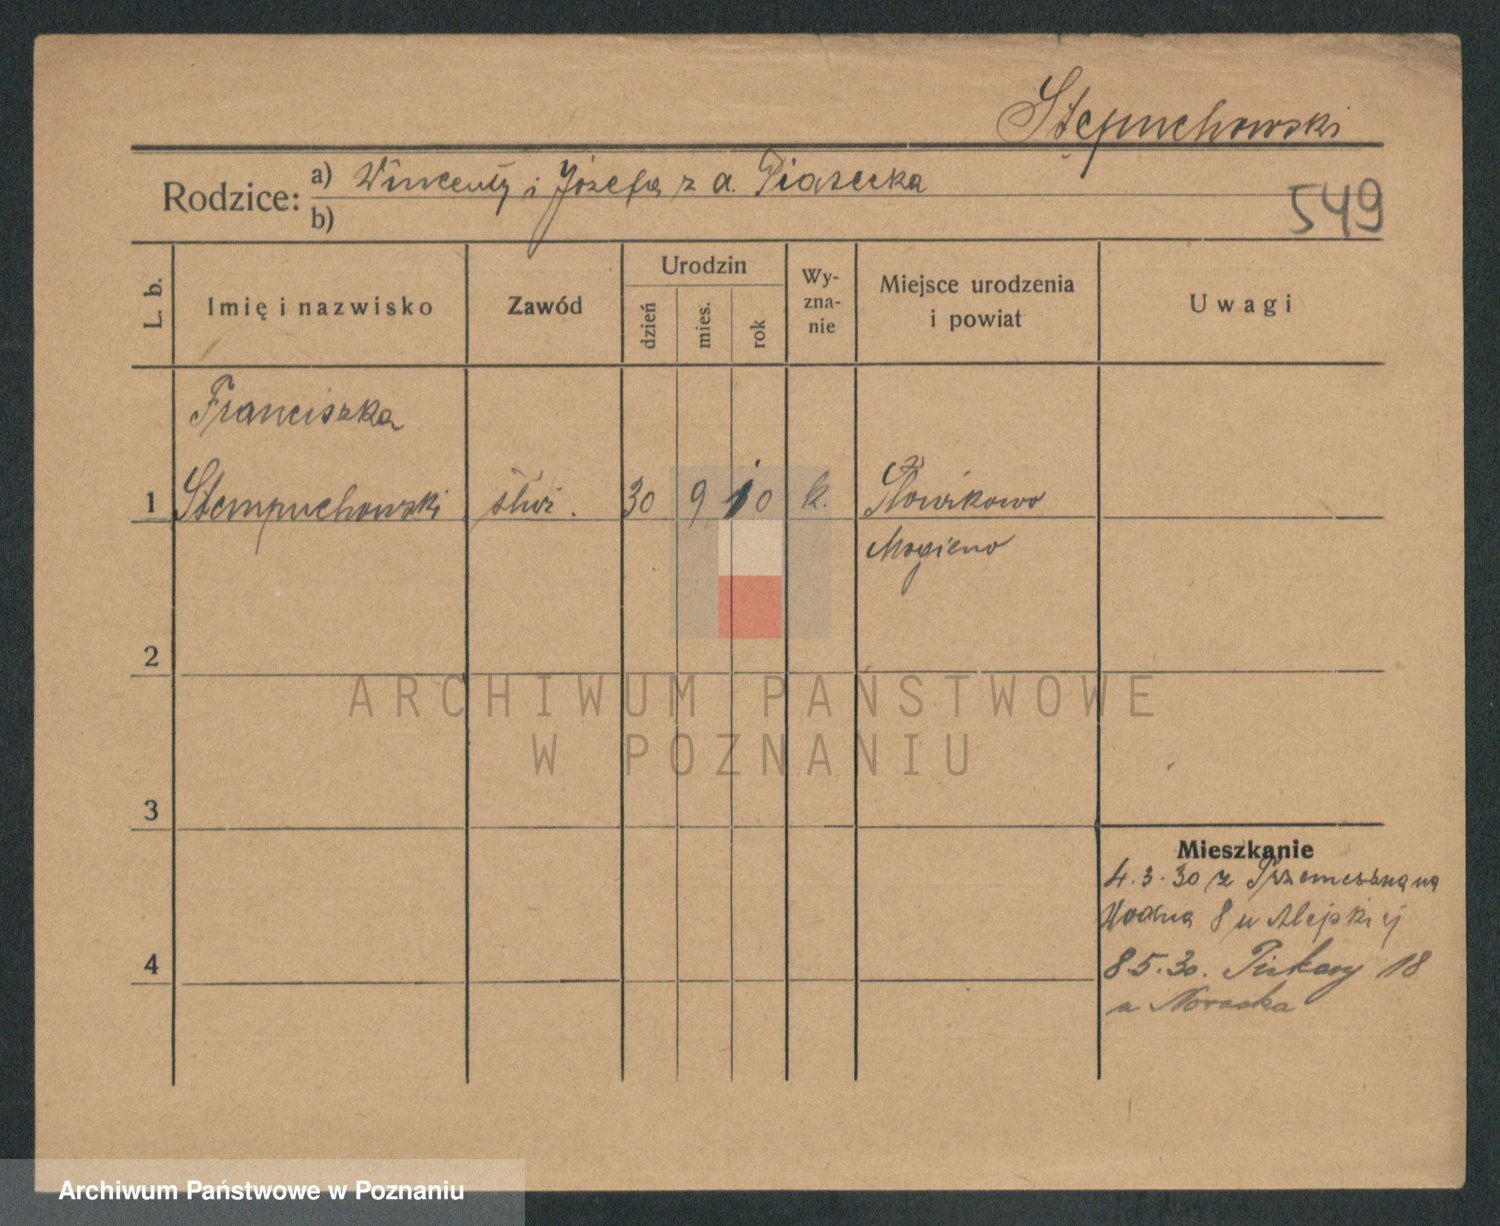 Stępuchowski
Rodzice: a) Wincenty i Józefa z d. Piasecka
b)
549
L. b.
Imię i nazwisko
Zawód
Urodzin
dzień
mies.
rok
Wy-
zna-
nie
Miejsce urodzenia
i powiat
Uwagi
Franciszka
1 Stempuchowski służ. 30 9 10 k. Słowikowo
Mogieno
2
3
4
Mieszkanie
4.3.30 z Trzemeszna na
Wodna 8 u Alejskiej
8.5.30. Piekary 18
u Nowacka
ARCHIWUM PAŃSTWOWE
W POZNANIU
Archiwum Państwowe w Poznaniu